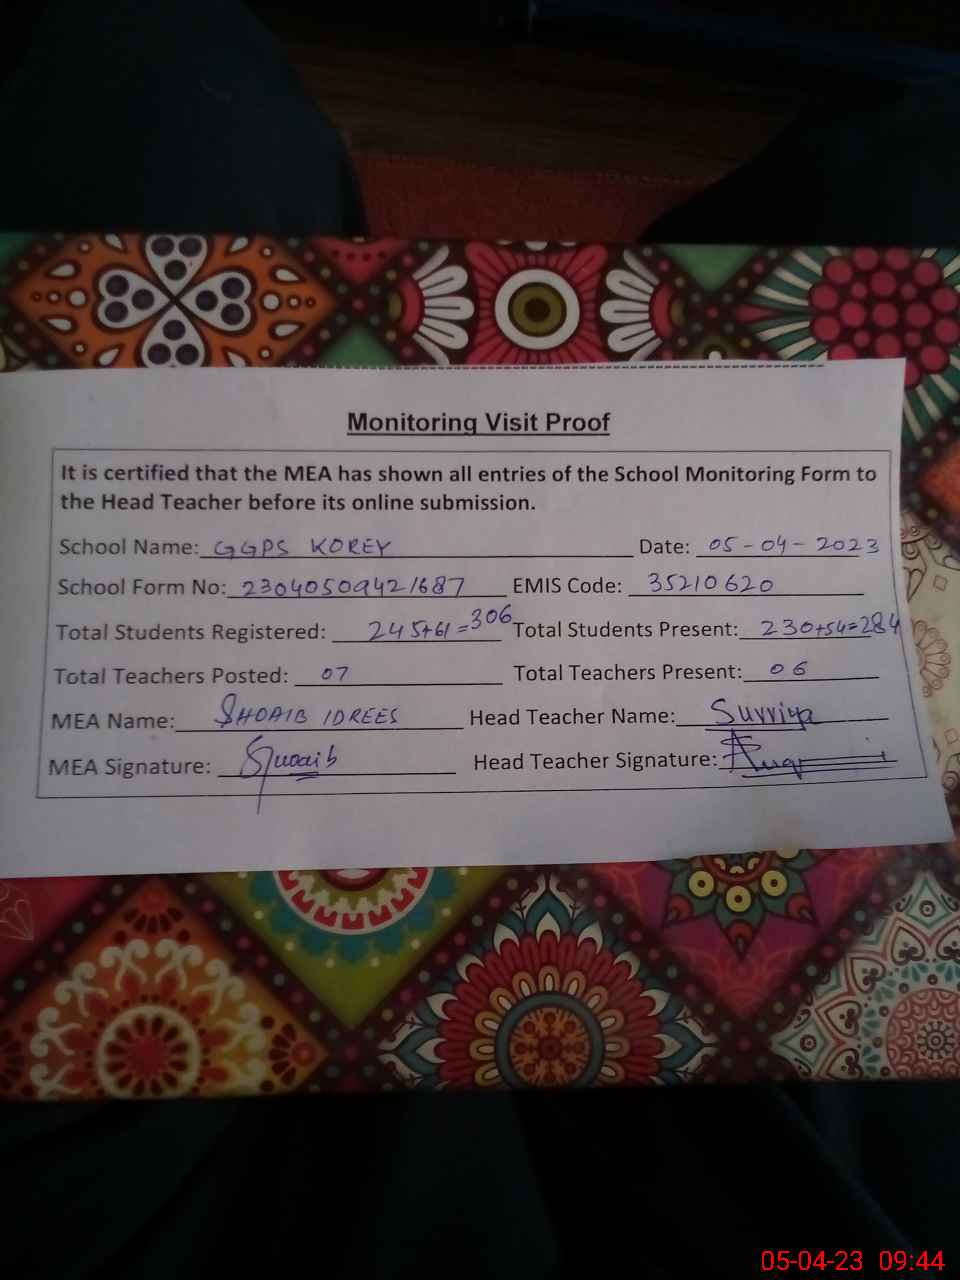 Monitoring Visit Proof
It is certified that the MEA has shown all entries of the School Monitoring Form to
the Head Teacher before its online submission.
School Name: GGPS KOREY Date: 05-04-2023
School Form No: 23040509421687 EMIS Code: 35210620
Total Students Registered: 245+61=306 Total Students Present: 230+54=284
Total Teachers Posted: 07 Total Teachers Present: 06
MEA Name: SHOAIB IDREES Head Teacher Name: Surriya
MEA Signature: Shoaib Head Teacher Signature:
05-04-23 09:44